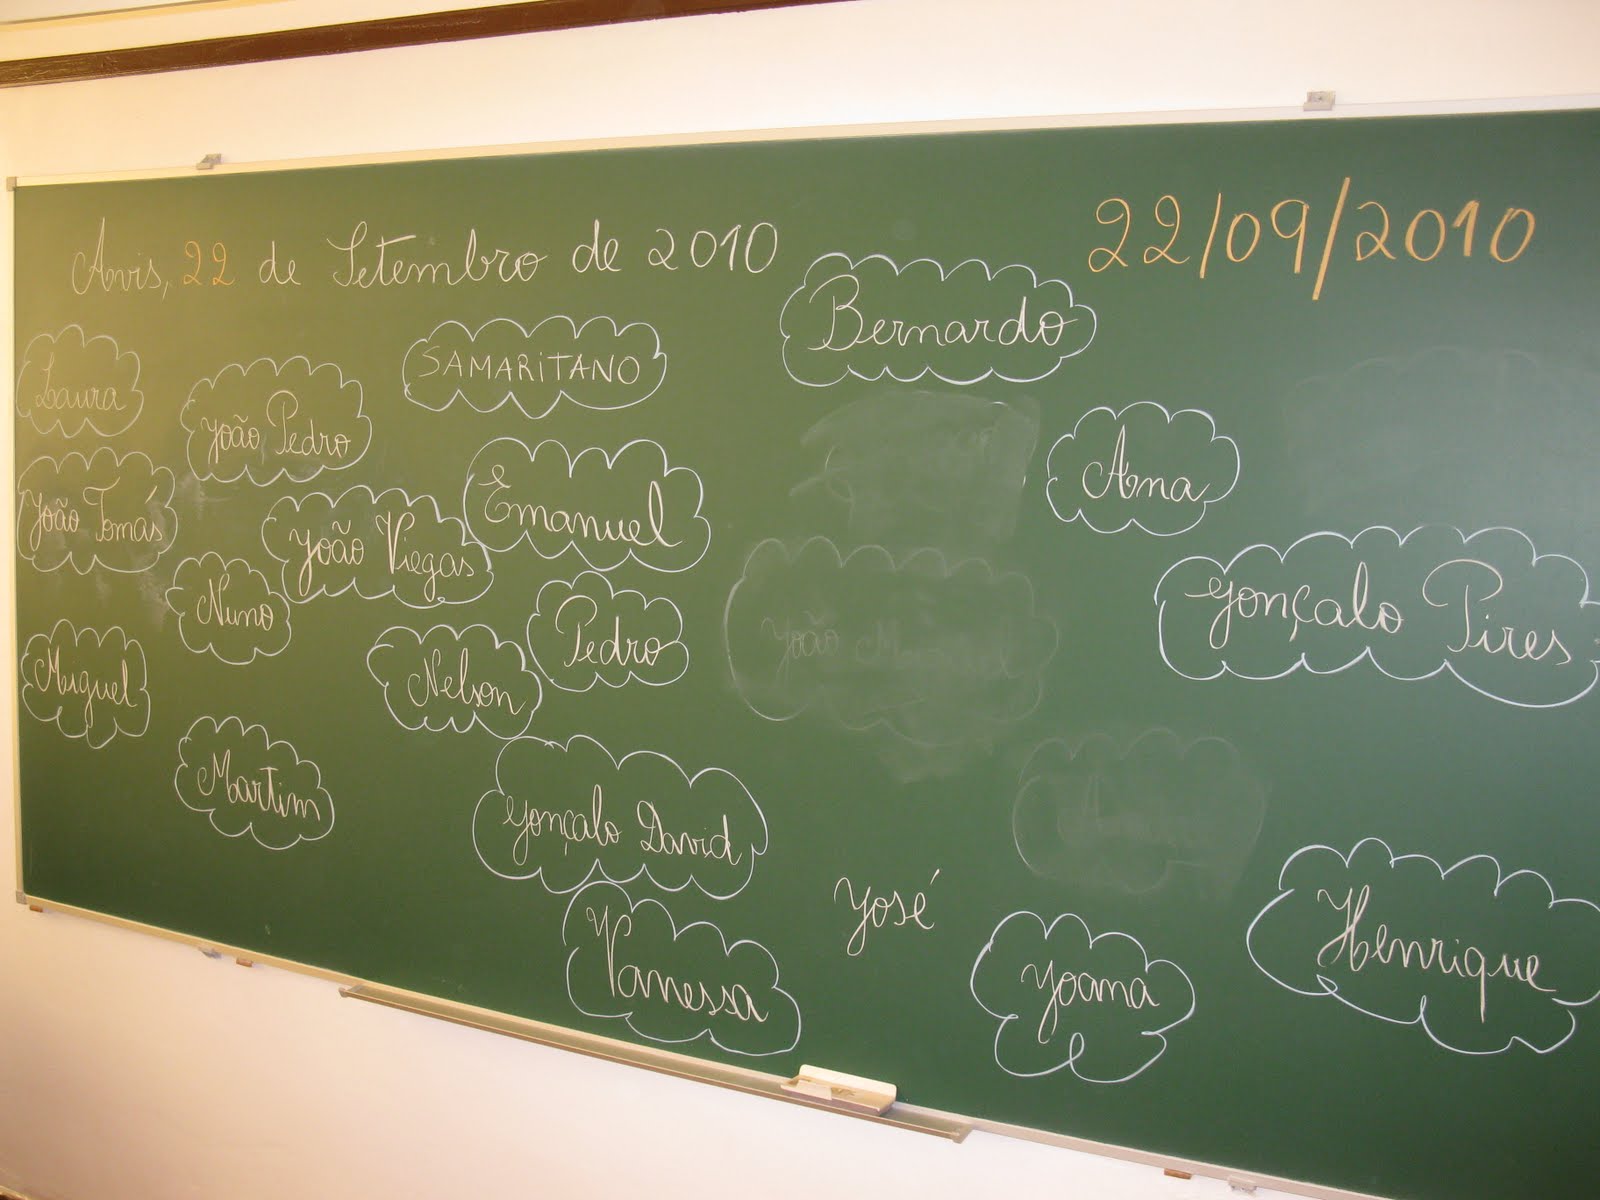 Avis, 22 de Setembro de 2010
22/09/2010
Bernardo
SAMARITANO
Laura
João Pedro
Ana
João Tomás
Emanuel
João Viegas
Gonçalo Pires
Nuno
Pedro
João
Miguel
Nelson
Martim
Gonçalo David
José
Vanessa
Joana
Henrique